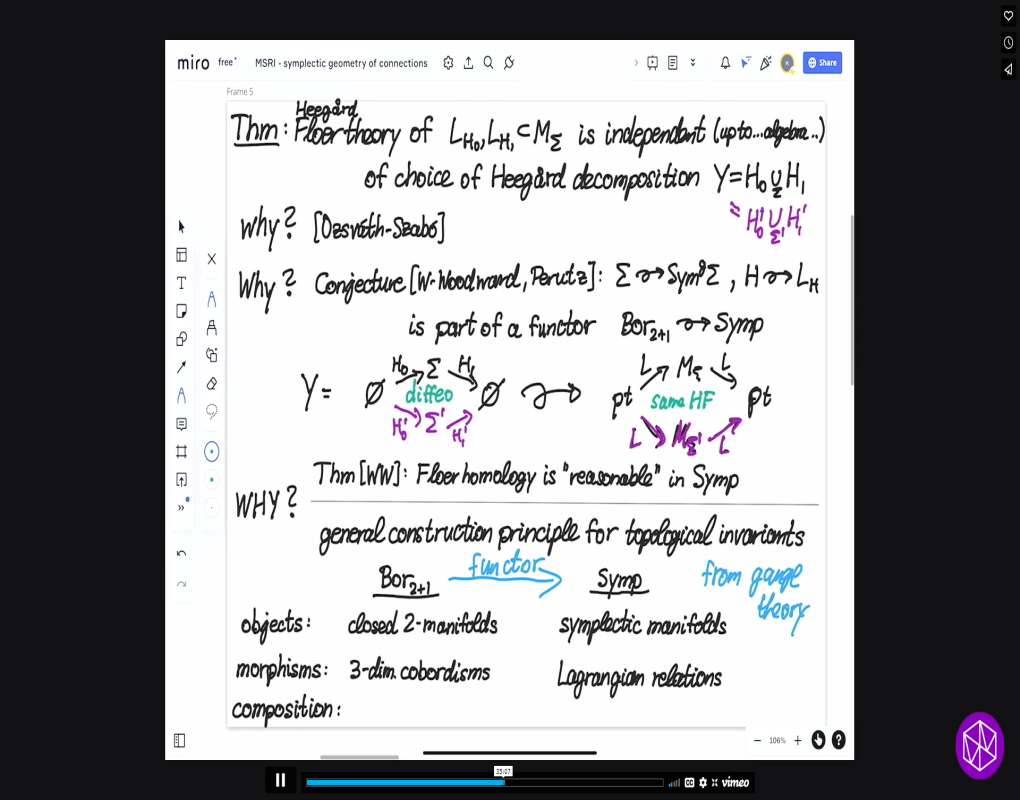 miro free MSRI - symplectic geometry of connections Share
Frame 5
Heegård
Thm: Floer theory of L_{H₀}, L_{H₁} ⊂ M_Σ is independant (up to...algebra..)
of choice of Heegård decomposition Y = H₀ ∪_Σ H₁
= H₀' ∪_Σ' H₁'
Why? [Ozsváth-Szabó]
Why? Conjecture [W-Woodward, Perutz]: Σ ⇝ Sym^g Σ, H ⇝ L_H
is part of a functor Bor₂₊₁ ⇝ Symp
H₀ Σ H₁ L M_Σ L
Y = ∅ diffeo ∅ ⇝ pt same HF pt
H₀' Σ' H₁' L M_Σ' L
Thm [WW]: Floer homology is "reasonable" in Symp
WHY?
general construction principle for topological invariants
Bor₂₊₁ functor Symp from gauge theory
objects: closed 2-manifolds symplectic manifolds
morphisms: 3-dim. cobordisms Lagrangian relations
composition:
− 106% + ?
35:07
CC vimeo